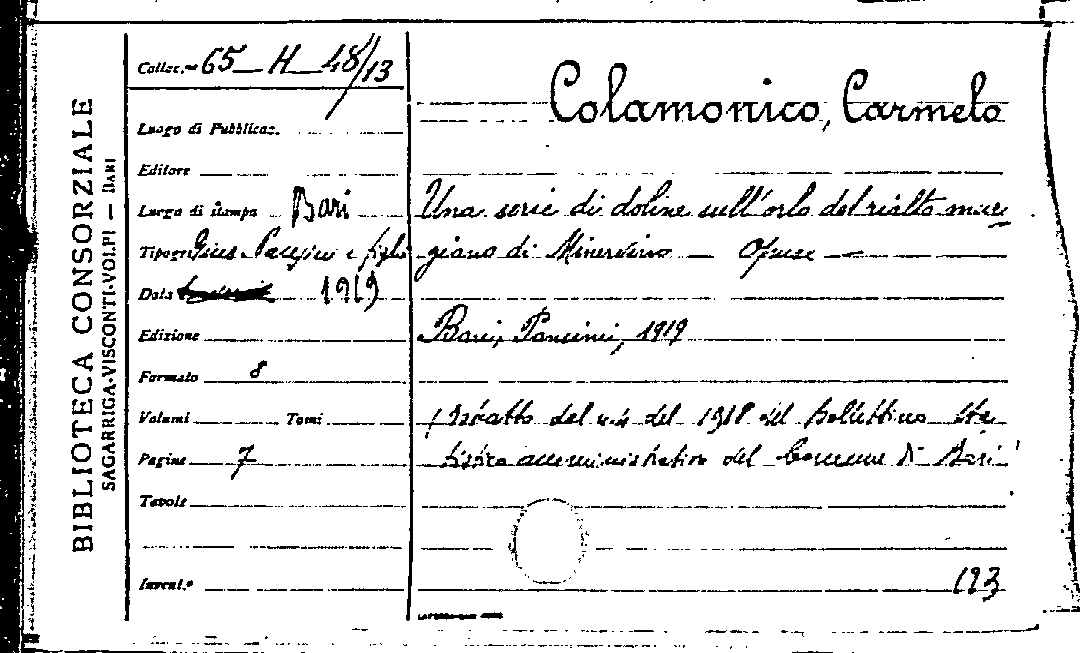 BIBLIOTECA CONSORZIALE
SAGARRIGA-VISCONTI-VOLPI — BARI
Colloc.ne 65 H 48/13
Luogo di Pubblicaz.
Editore
Luogo di stampa Bari
Tipogr. Gius. Pansini e figli
Data 1919
Edizione
Formato 8
Volumi Tomi
Pagine 7
Tavole
Invent.º
Colamonico, Carmelo
Una serie di doline sull'orlo del rialto mur
giano di Minervino — Opusc —
Bari, Pansini, 1919
(Estratto del del 1918 del Bollettino Sta
tistico amministrativo del Comune di Bari
123